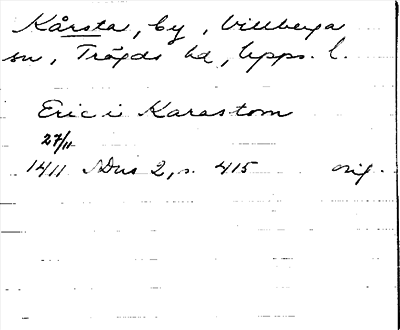 Kårsta, by, Villberga
sn, Trögds hd, Upps. l.
Eric i Karastom
27/11
1411 SDns 2, s. 415 orig.